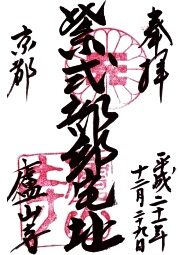 奉拝
平成二十一年
十二月二十九日
紫式部邸宅址
京都
廬山寺